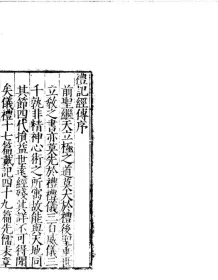 禮記經傳序
前聖繼天立極之道莫大於禮後聖垂世
立教之書亦莫先於禮禮儀三百威儀三
千孰非精神心術之所寓故能與天地同
其節四代損益世遠經殘其詳不可得聞
矣儀禮十七篇戴記四十九篇先儒表章